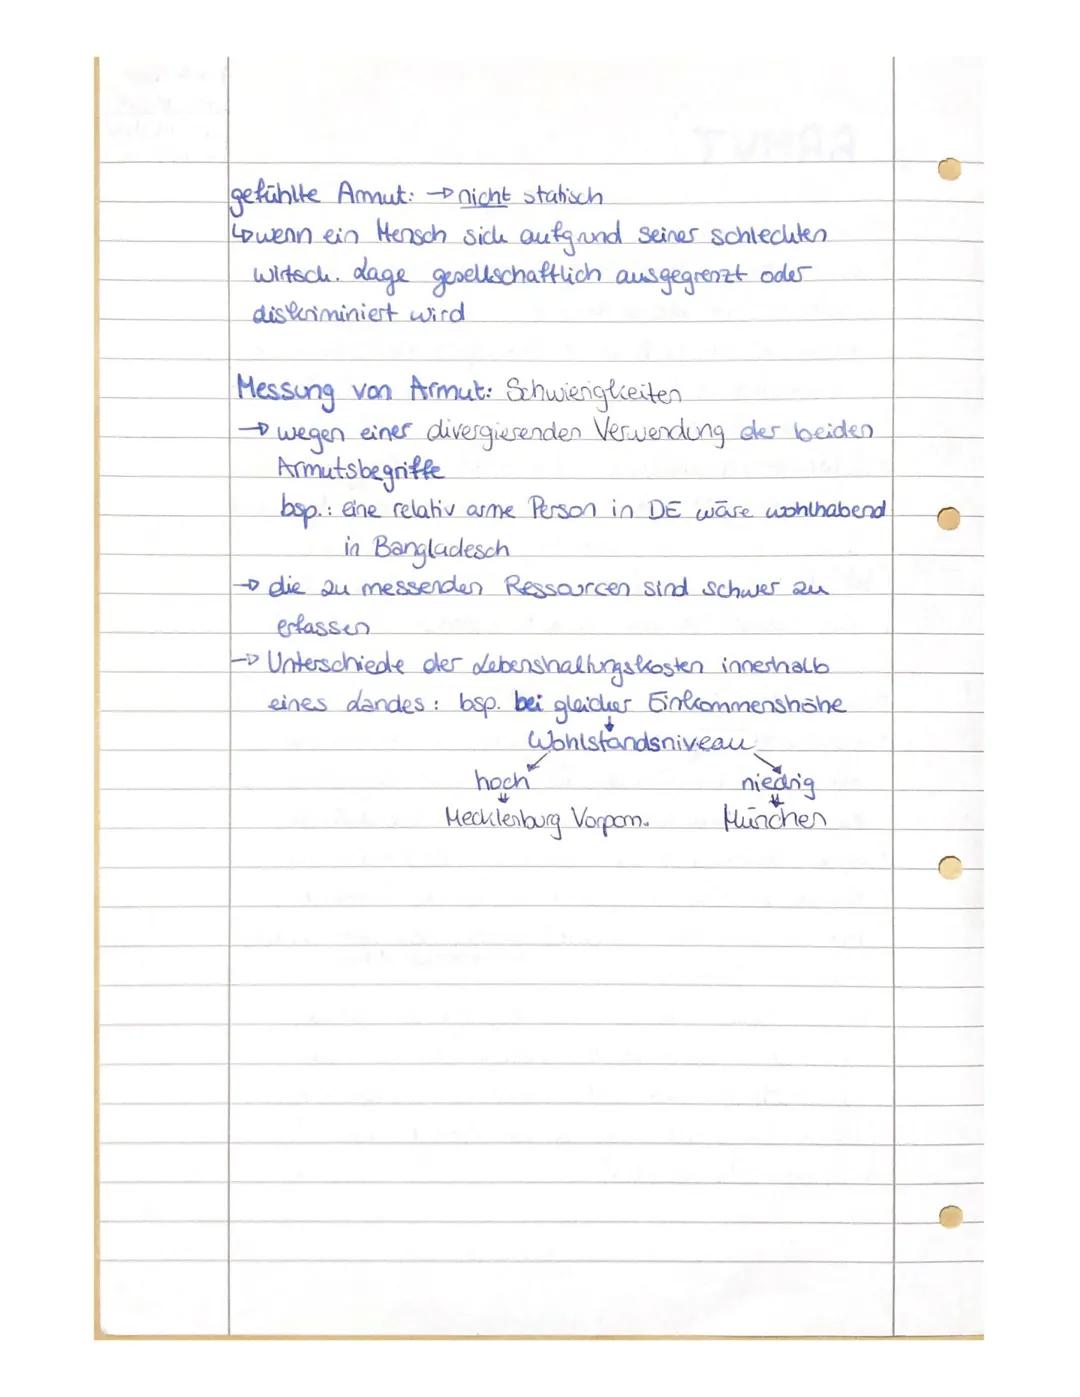 gefühlte Armut: → nicht statisch
↳ wenn ein Mensch sich aufgrund seiner schlechten
wirtsch. Lage gesellschaftlich ausgegrenzt oder
diskriminiert wird
Messung von Armut: Schwierigkeiten
→ wegen einer divergierenden Verwendung der beiden
Armutsbegriffe
bsp.: eine relativ arme Person in DE wäre wohlhabend
in Bangladesch
→ die zu messenden Ressourcen sind schwer zu
erfassen
→ Unterschiede der Lebenshaltungskosten innerhalb
eines Landes: bsp. bei gleicher Einkommenshöhe
↓
Wohlstandsniveau
↙ ↘
hoch niedrig
↓ ↓
Mecklenburg Vorpom. München